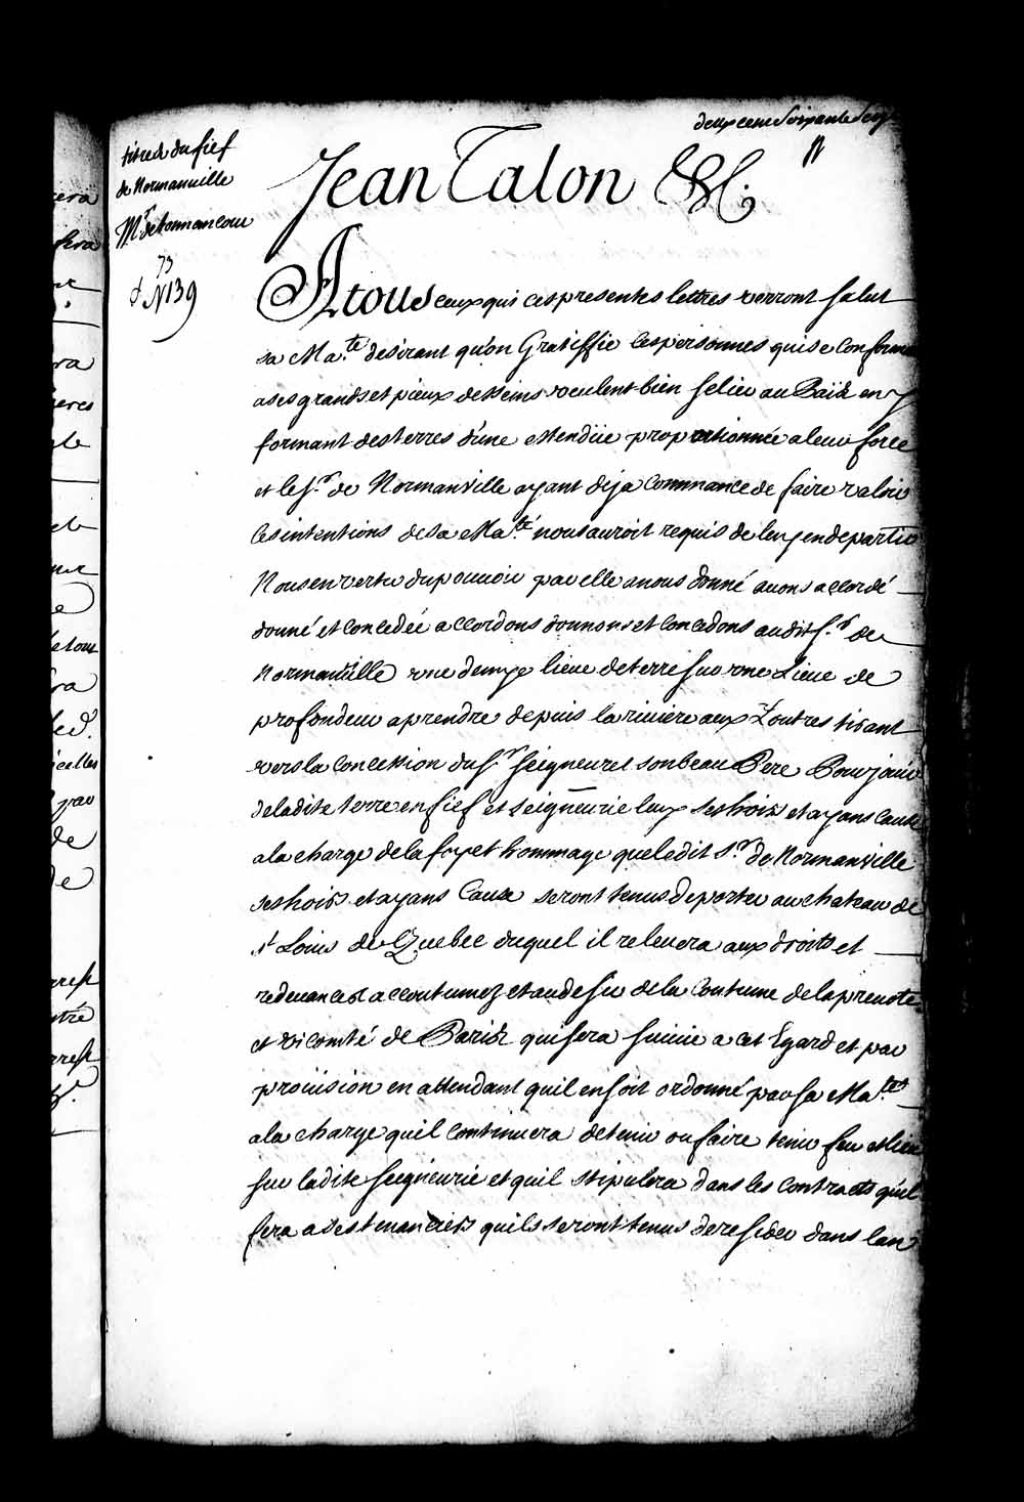 deux cent soixante seize
titre du fief
de Normanville
M.r de tonnancour
73
N 139
Jean Talon &c.
A tous ceux qui ces presentes lettres verront salut
sa Ma.té desirant qu'on Gratiffie les personnes qui se conforme
a ses grands et pieux desseins veulent bien se lier au Païs en y
formant des terres d'une estendüe proportionnée a leur force
et le s.r de Normanville ayant deja commancé de faire valoir
les intentions de sa Ma.té nous auroit requis de luy en departir
Nous en vertu du pouvoir par elle a nous donné avons accordé
donné et concedée accordons donnons et concedons audit s.r de
Normanville une demye lieüe de terre sur une Lieüe de
profondeur a prendre depuis la riviere aux Loutres tirant
vers la concession du s.r seigneuret son beau Pere Pour jouir
de ladite terre en fief et seigneurie luy ses hoirs et ayans cause
a la charge de la foy et hommage que ledit s.r de Normanville
ses hoirs et ayans Cause seront tenus de porter au chateau de
s.t Louis de Quebec duquel il relevera aux droits et
redevances accoutumez et au desir de la Coutume de la prevoté
et vicomté de Paris qui sera suivie a cet Egard et par
provision en attendant qu'il en soit ordonné par sa Ma.té
a la charge quil continuera de tenir ou faire tenir feu et lieu
sur ladite seigneurie et quil stipulera dans les contracts qu'il
fera a ses tenanciers quils seront tenus de resider dans lan